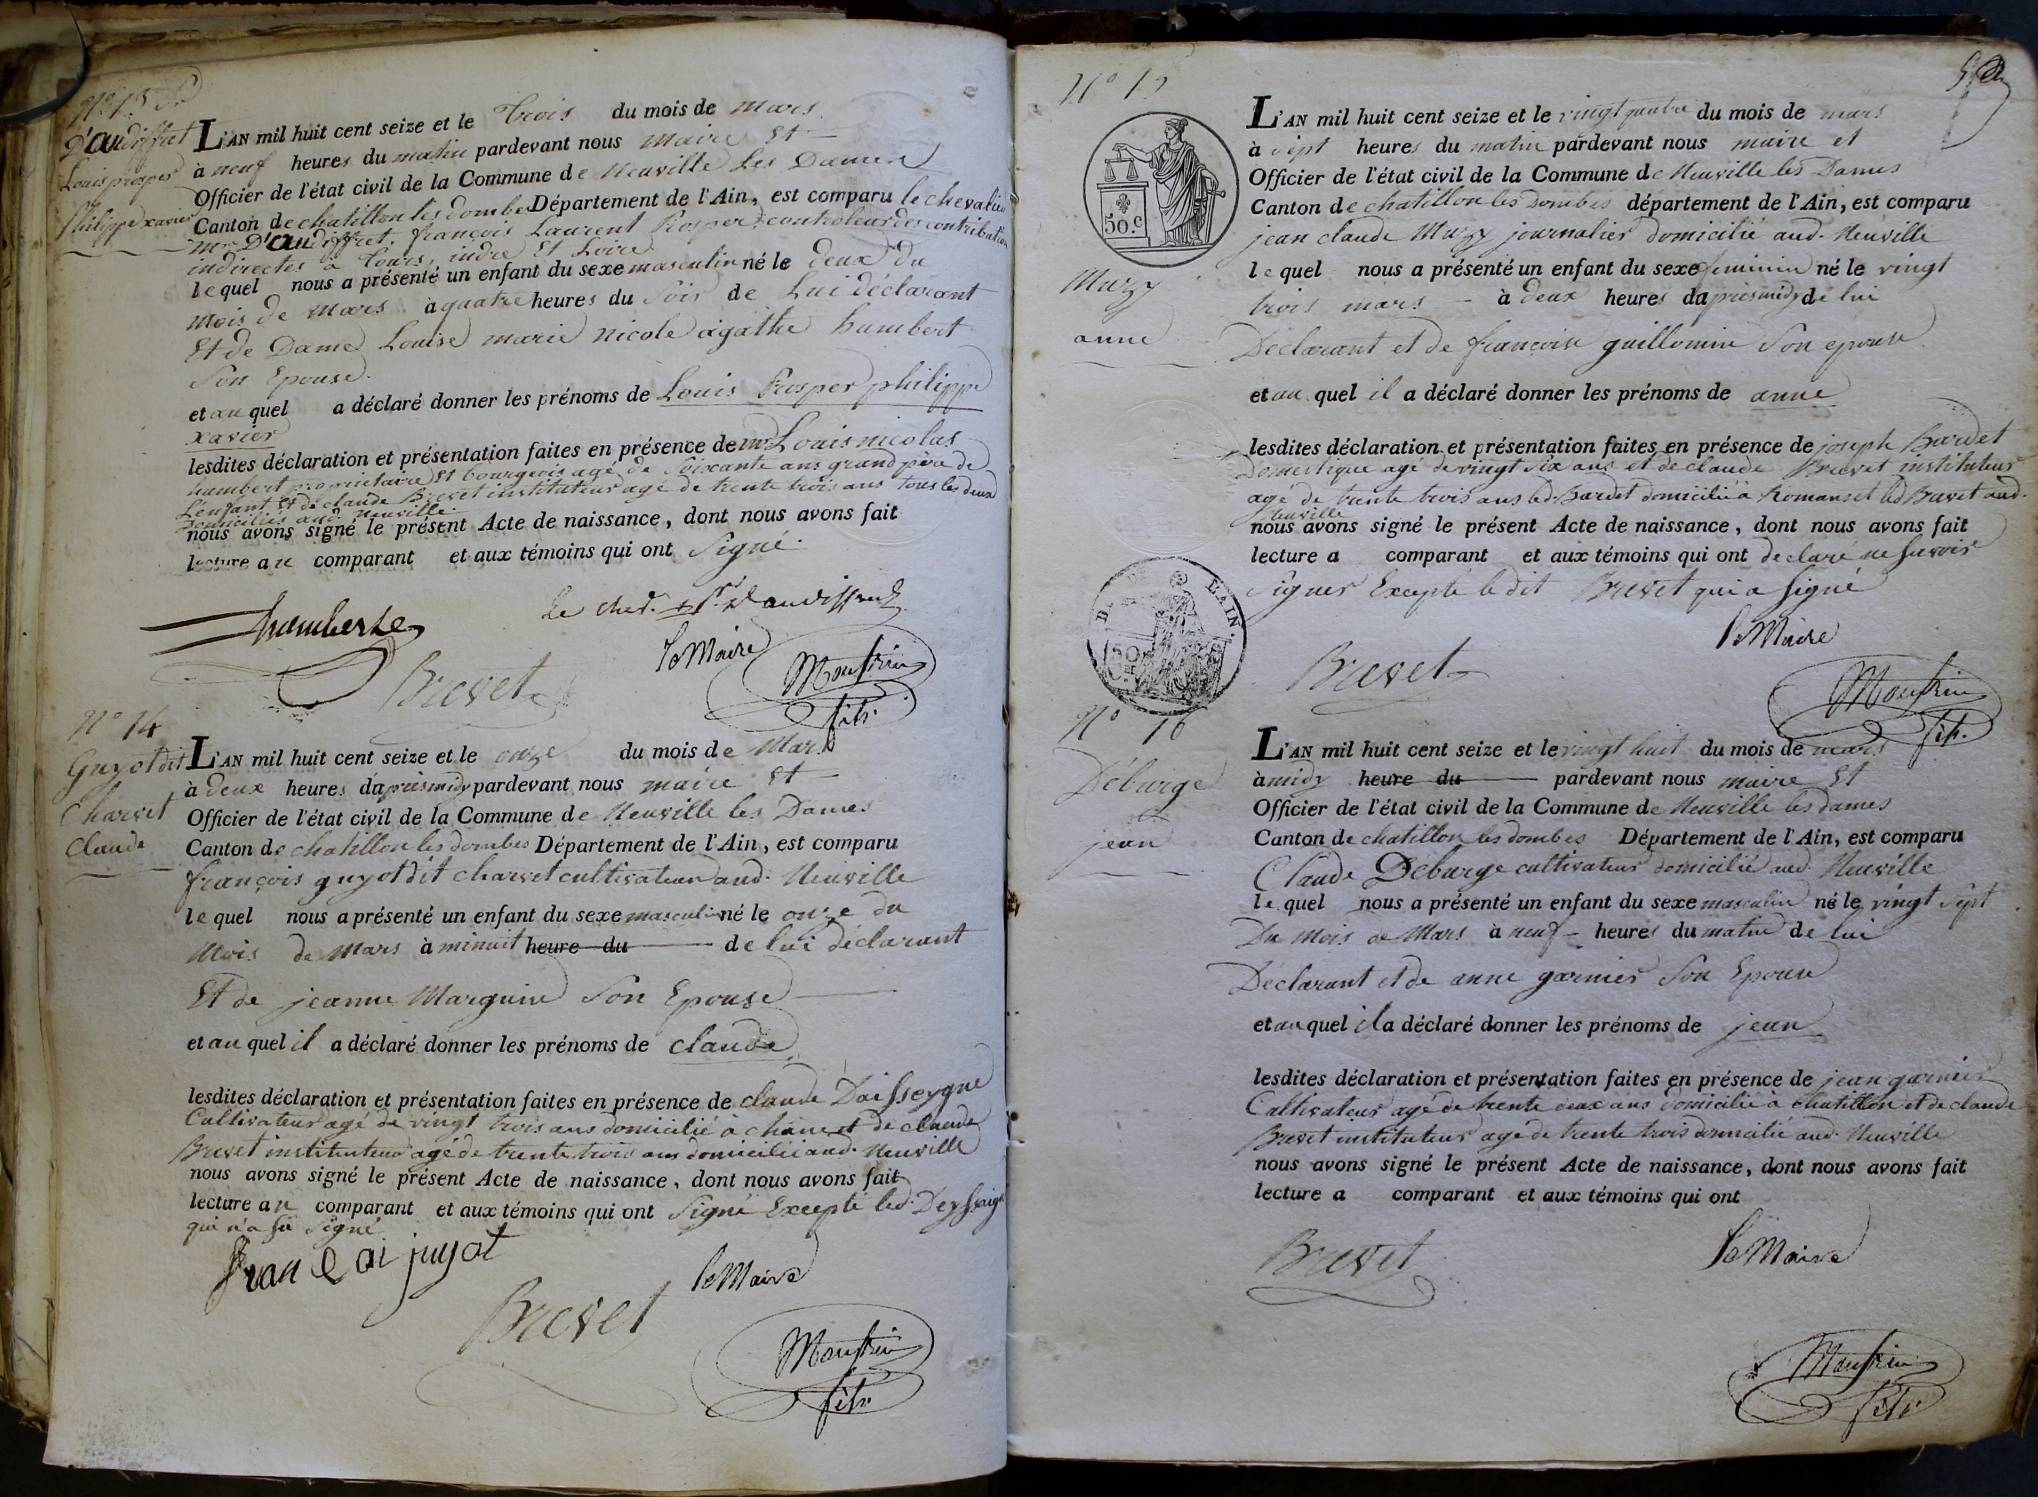 N° 13
D'audiffret
Louis prosper
Philippe xavier
L'AN mil huit cent seize et le trois du mois de mars
à neuf heures du matin pardevant nous maire Et
Officier de l'état civil de la Commune de Neuville Les Dames
Canton de chatillon les dombes Département de l'Ain, est comparu le chevalier
mr D'audiffret, françois Laurent Prosper, controleur des contributions
indirectes à Tours, indre Et Loire
lequel nous a présenté un enfant du sexe masculin né le deux du
mois de mars à quatre heures du soir de Lui déclarant
Et de Dame Louise marie nicole agathe humbert
Son Epouse.
et au quel a déclaré donner les prénoms de Louis Prosper philippe
xavier
lesdites déclaration et présentation faites en présence de mr Louis nicolas
humbert proprietaire Et bourgeois agé de soixante ans grand père de
L'enfant Et de claude Brevet instituteur agé de trente trois ans tous les deux
domiciliés aud. neuville.
nous avons signé le présent Acte de naissance, dont nous avons fait
lecture au comparant et aux témoins qui ont signé.
humbert
Le cher. d'audiffret
le Maire
Brevet
fils.
N° 14
Guyot dit
Charvet
Claude
L'AN mil huit cent seize et le onze du mois de Mars
à deux heures d'apresmidy pardevant nous maire Et
Officier de l'état civil de la Commune de Neuville les Dames
Canton de chatillon les dombes Département de l'Ain, est comparu
françois guyot dit charvet cultivateur aud. Neuville
lequel nous a présenté un enfant du sexe masculin né le onze du
Mois de Mars à minuit heure du de lui déclarant
Et de jeanne Marguin Son Epouse
et au quel il a déclaré donner les prénoms de claude
lesdites déclaration et présentation faites en présence de claude Daisseygne
Cultivateur agé de vingt trois ans domicilié à chaine et de claude
Brevet instituteur agé de trente trois ans domicilié aud. Neuville
nous avons signé le présent Acte de naissance, dont nous avons fait
lecture au comparant et aux témoins qui ont signé Excepté led.
qui n'a su signé.
francoi juyot
le Maire
Brevet
fils
N° 15
50.c
Muzy
anne
L'AN mil huit cent seize et le vingt quatre du mois de mars
à sept heures du matin pardevant nous maire et
Officier de l'état civil de la Commune de Neuville les Dames
Canton de chatillon les Dombes département de l'Ain, est comparu
jean claude Muzy journalier domicilié aud. Neuville
lequel nous a présenté un enfant du sexe feminin né le vingt
trois mars à deux heures d'apresmidy de lui
Déclarant et de françoise guillomin Son epouse
et au quel il a déclaré donner les prénoms de anne
lesdites déclaration et présentation faites en présence de joseph Bardet
Domestique agé de vingt six ans et de claude Brevet instituteur
agé de trente trois ans led. Bardet domicilié à Romans et led Brevet aud.
Neuville
nous avons signé le présent Acte de naissance, dont nous avons fait
lecture a comparant et aux témoins qui ont declaré ne savoir
signer Excepté le dit Brevet qui a signé
L'AIN.
le Maire
Brevet
fils.
N° 16
Déburge
jean
L'AN mil huit cent seize et le vingt huit du mois de mars
à midy heure du pardevant nous maire Et
Officier de l'état civil de la Commune de Neuville les dames
Canton de chatillon les dombes Département de l'Ain, est comparu
Claude Déburge cultivateur domicilié aud. Neuville
lequel nous a présenté un enfant du sexe masculin né le vingt sept
Du Mois de Mars à neuf heures du matin de lui
Déclarant et de anne garnier Son Epouse
et au quel il a déclaré donner les prénoms de jean
lesdites déclaration et présentation faites en présence de jean garnier
Cultivateur agé de trente deux ans domicilié à chatillon et de claude
Brevet instituteur agé de trente trois domicilié aud. Neuville
nous avons signé le présent Acte de naissance, dont nous avons fait
lecture a comparant et aux témoins qui ont
Brevet
le Maire
fils